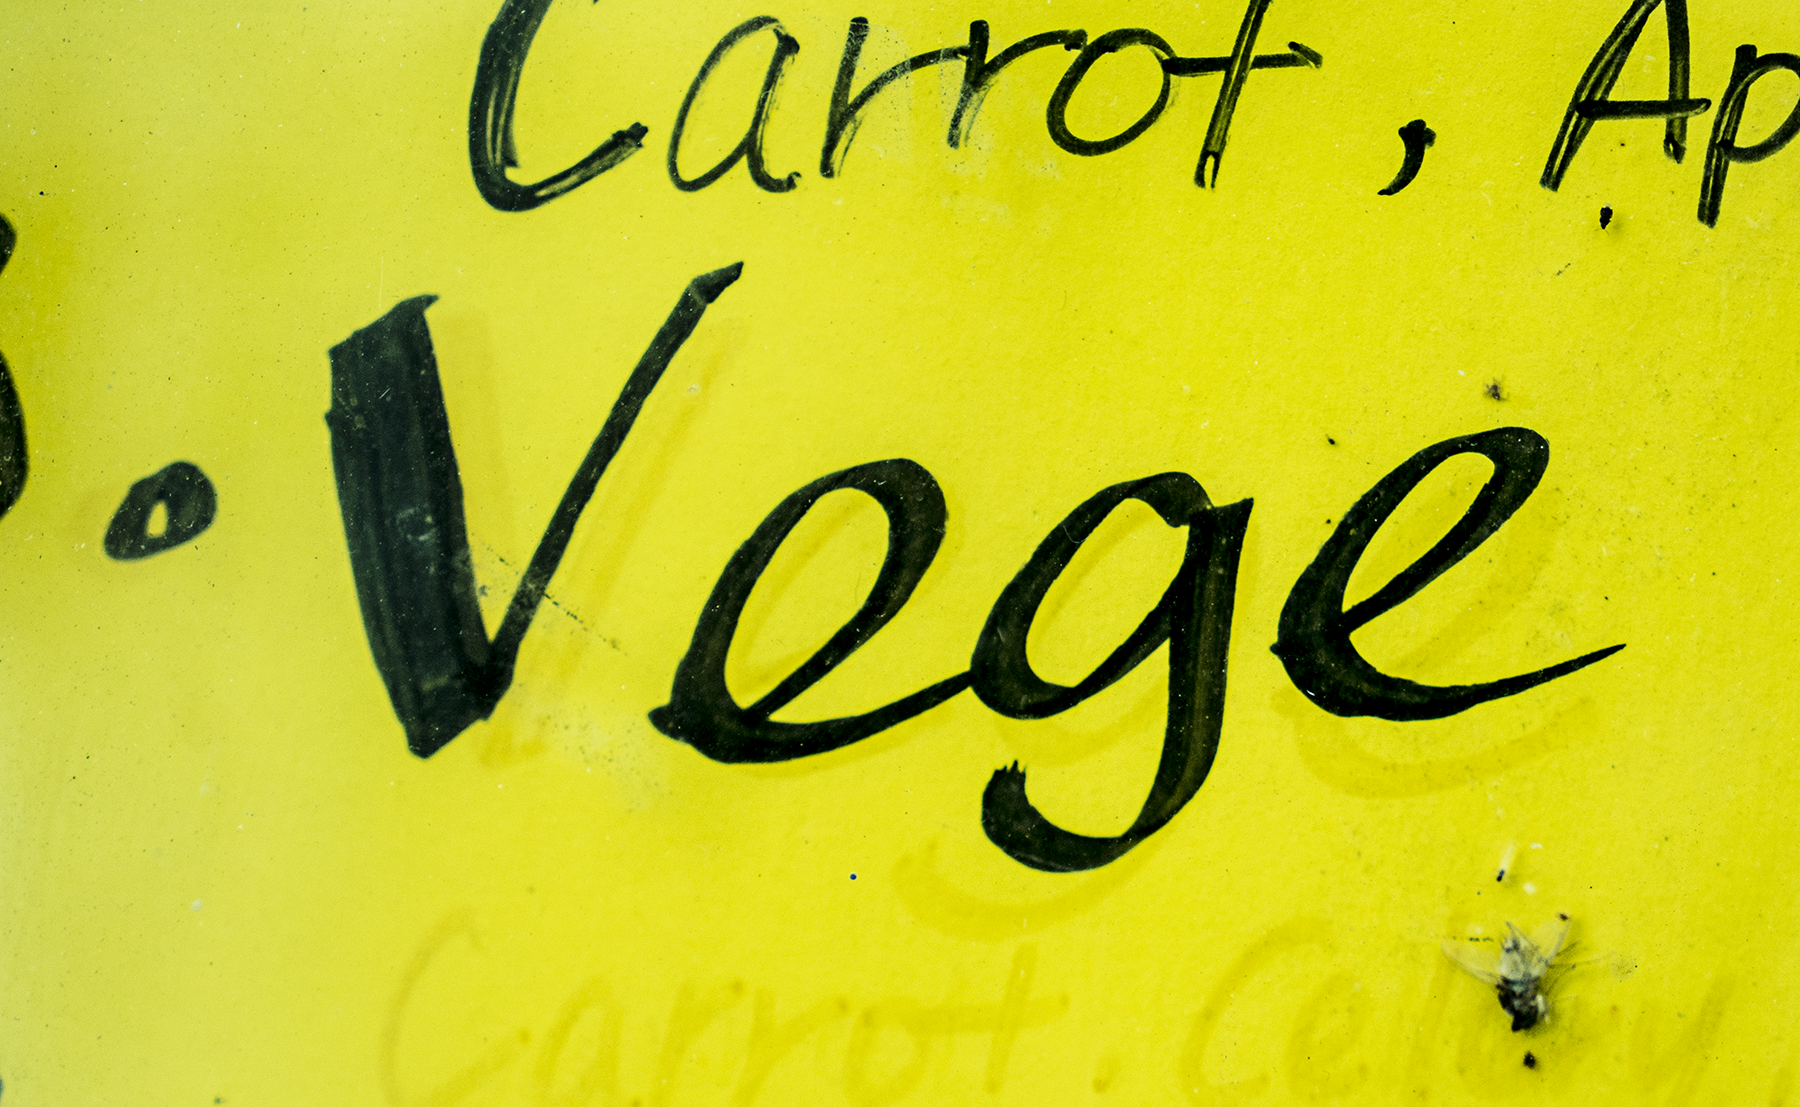 Carrot, Ap
. Vege
Carrot, Cellery,